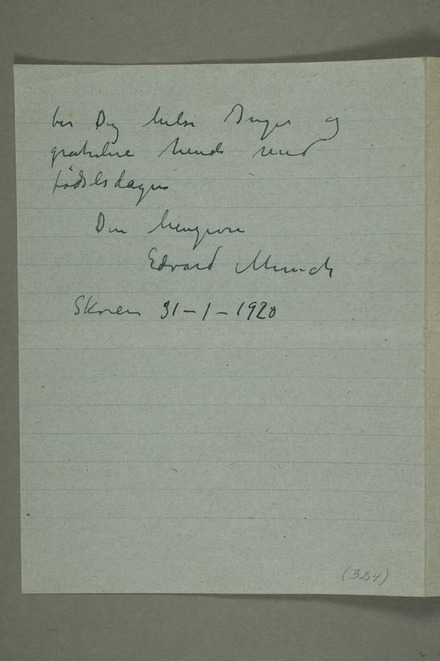 ber Dig hilse Inger og
gratulere hende med
fødselsdagen
Din hengivne
Edvard Munch
Skøien 31-1-1920
(324)